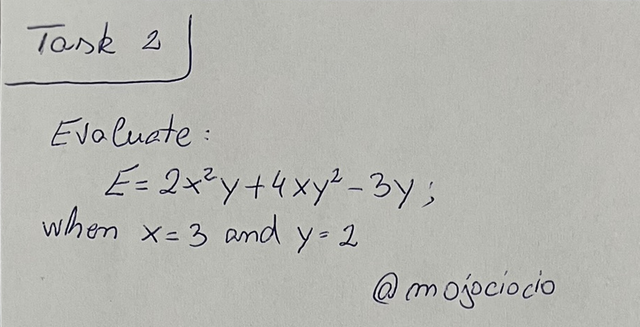 Task 2
Evaluate:
E = 2x²y + 4xy² - 3y;
when x = 3 and y = 2
@mojociocio